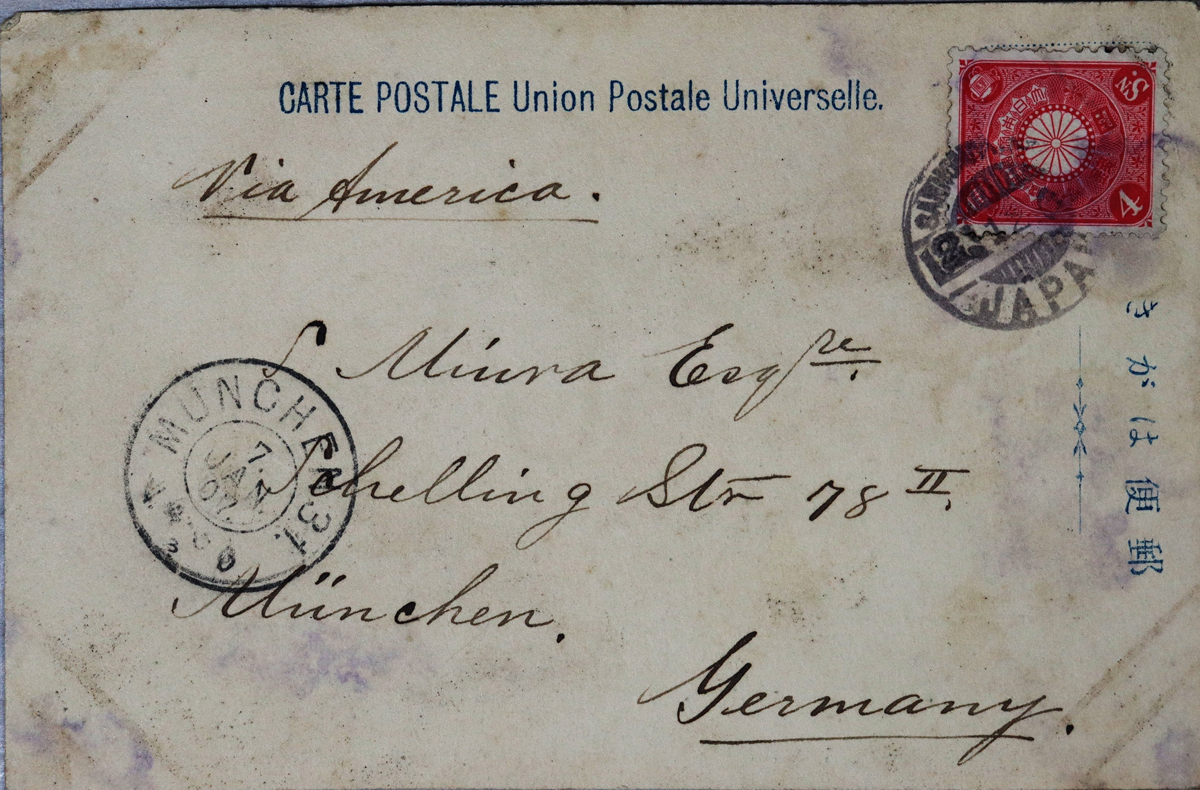 CARTE POSTALE Union Postale Universelle.
Via America.
S Miura Esqre.
Schelling Str 78 II.
München.
Germany.
MÜNCHEN 31.
7
JAN
JAPAN
4
SN.
きがは便郵